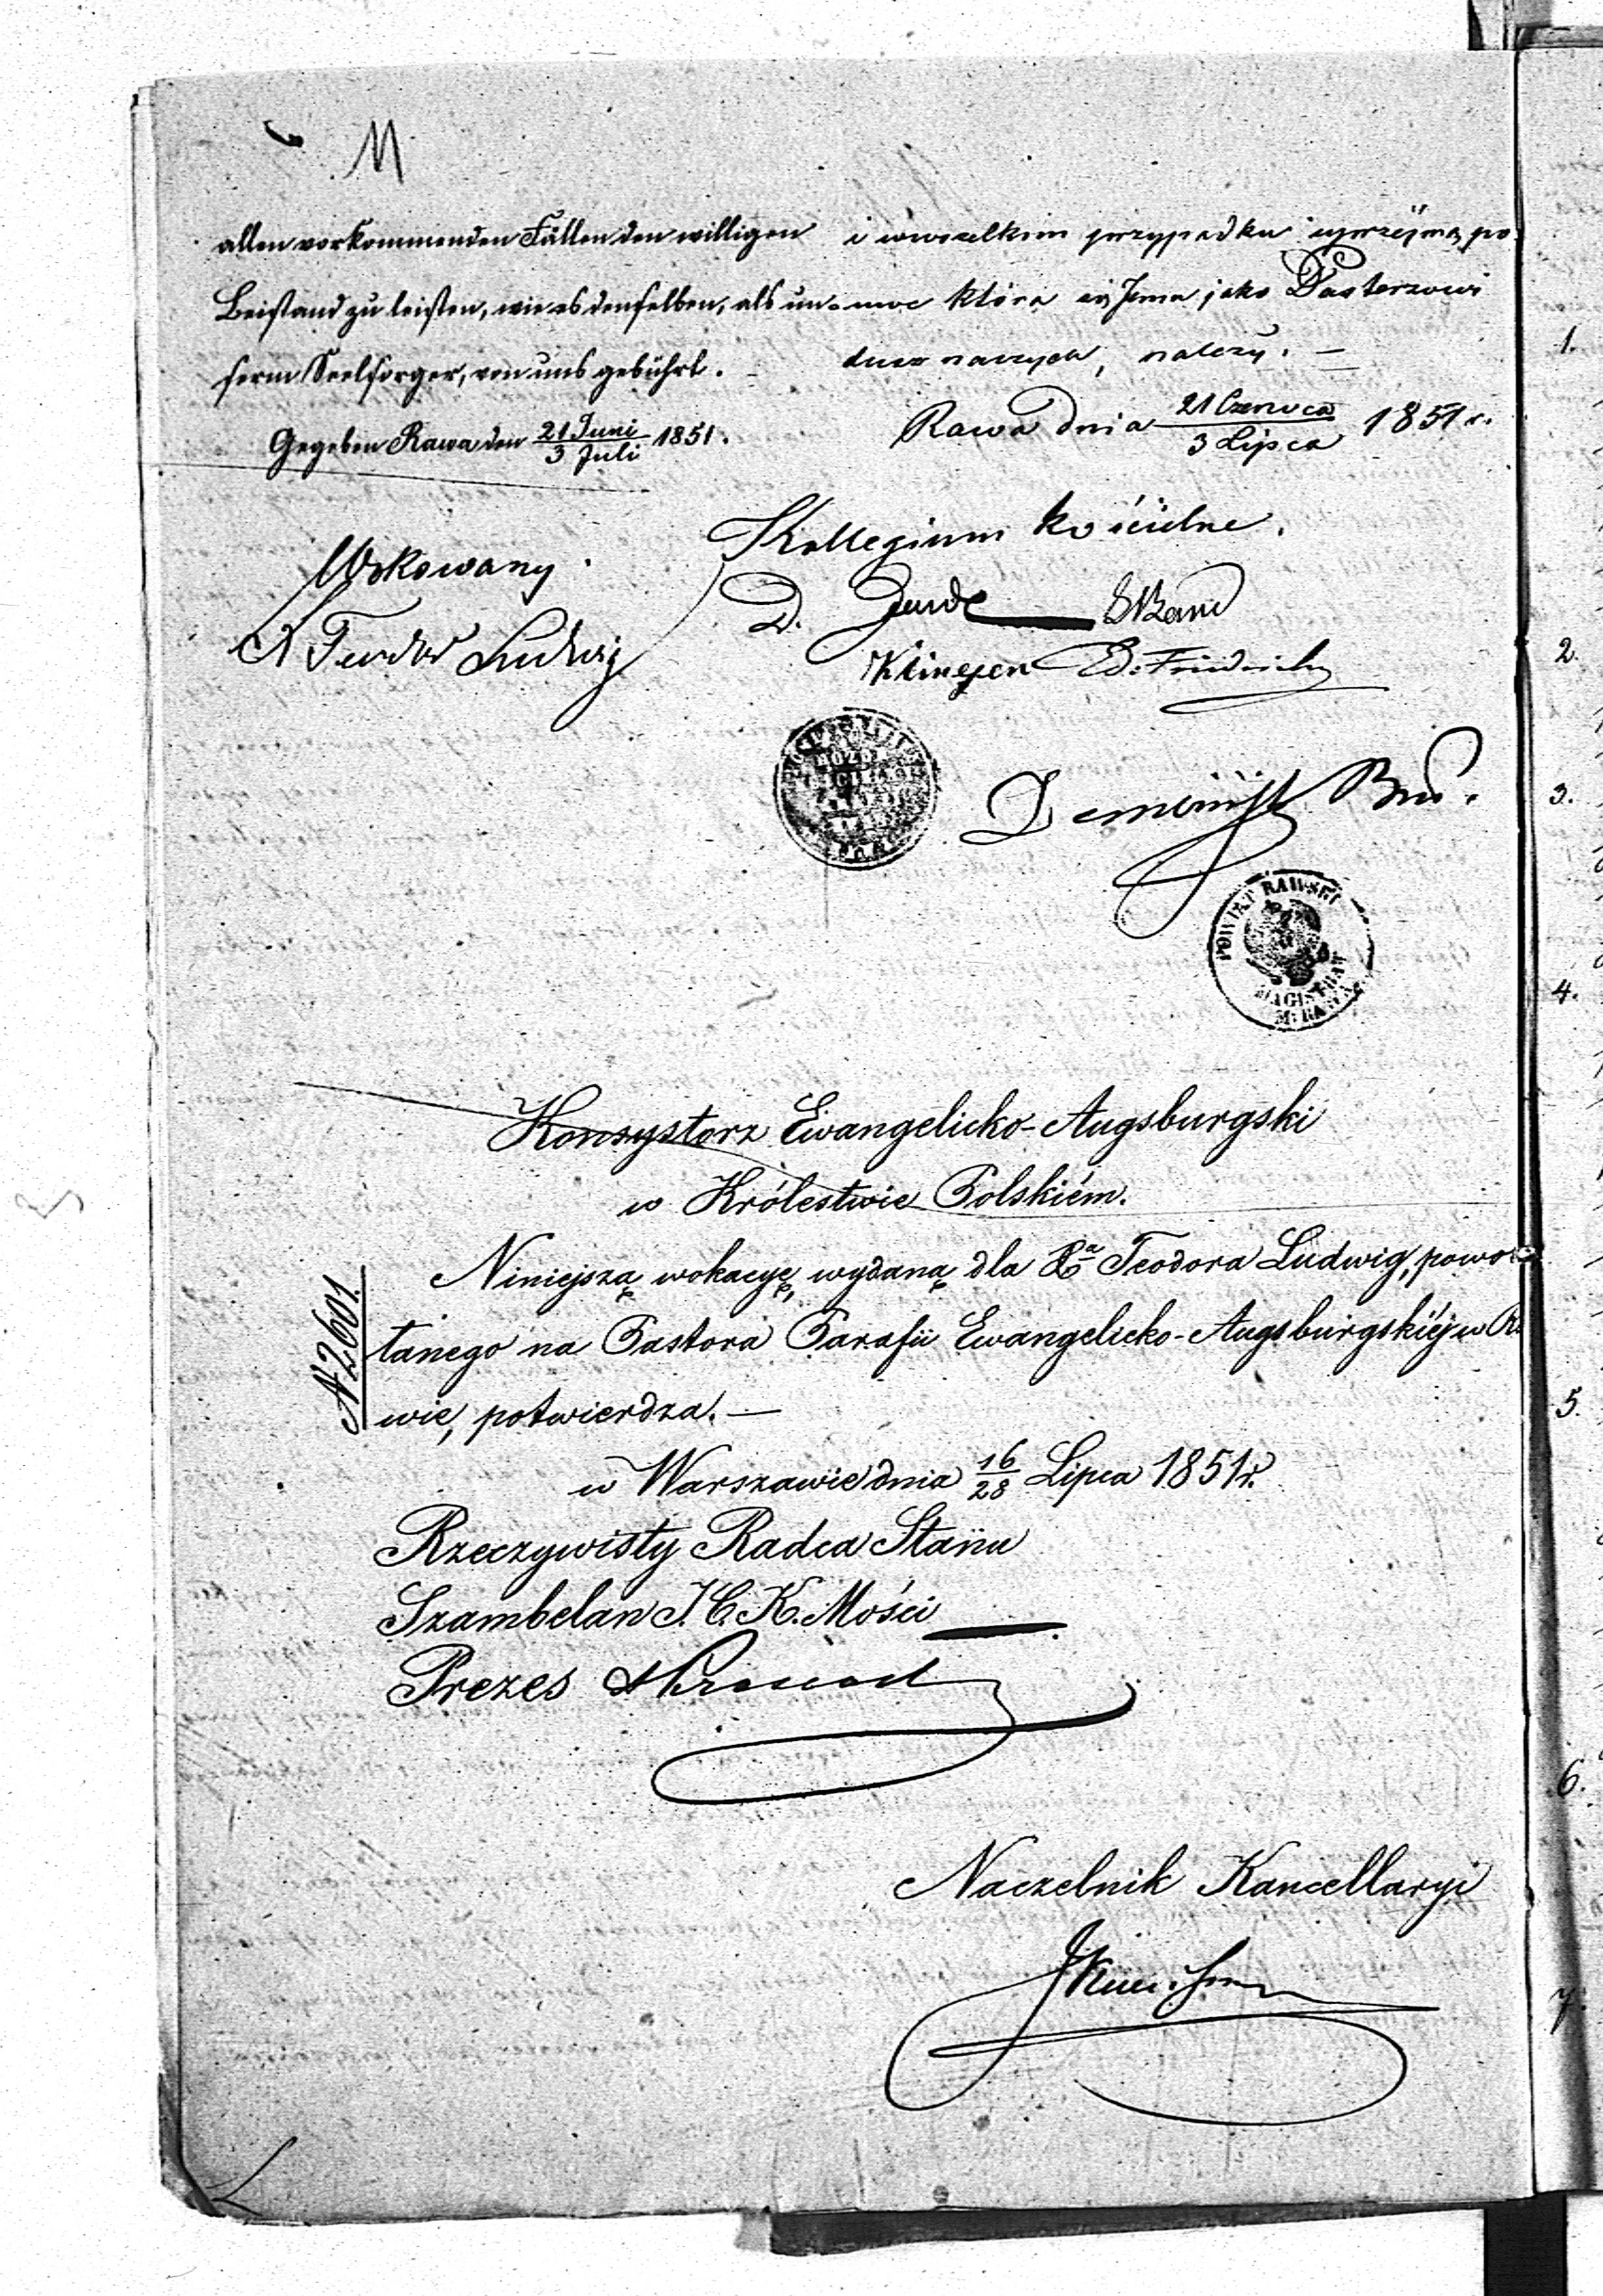 11
allen vorkommenden Fällen den willigen
Beistand zu leisten, wie es denselben, als un-
serm Seelsorger, von uns gebührt.
Gegeben Rawa den 21 Juni / 3 Juli 1851.
i wwszelkim przypadku uprzejmą po-
moc która się Jemu jako Pasterzowi
dusz naszych, należy. —
Rawa dnia 21 Czerwca / 3 Lipca 1851 r.
Kollegium kościelne.
Wokowany
Teodor Ludwig
D.
Klingen Ed. Friedrich
POWIAT RAWSKI
MAGISTRAT
M. RAWA
Konsystorz Ewangelicko-Augsburgski
w Królestwie Polskiém.
N 2601.
Niniejszą wokacyę, wydaną dla Xa Teodora Ludwig, powo-
łanego na Pastora Parafii Ewangelicko-Augsburgskiéj w Ra
wie, potwierdza. —
w Warszawie dnia 16/28 Lipca 1851 r.
Rzeczywisty Radca Stanu
Szambelan J. C. K. Mości
Prezes
Naczelnik Kancellaryi
1.
2.
3.
4.
5.
6.
7